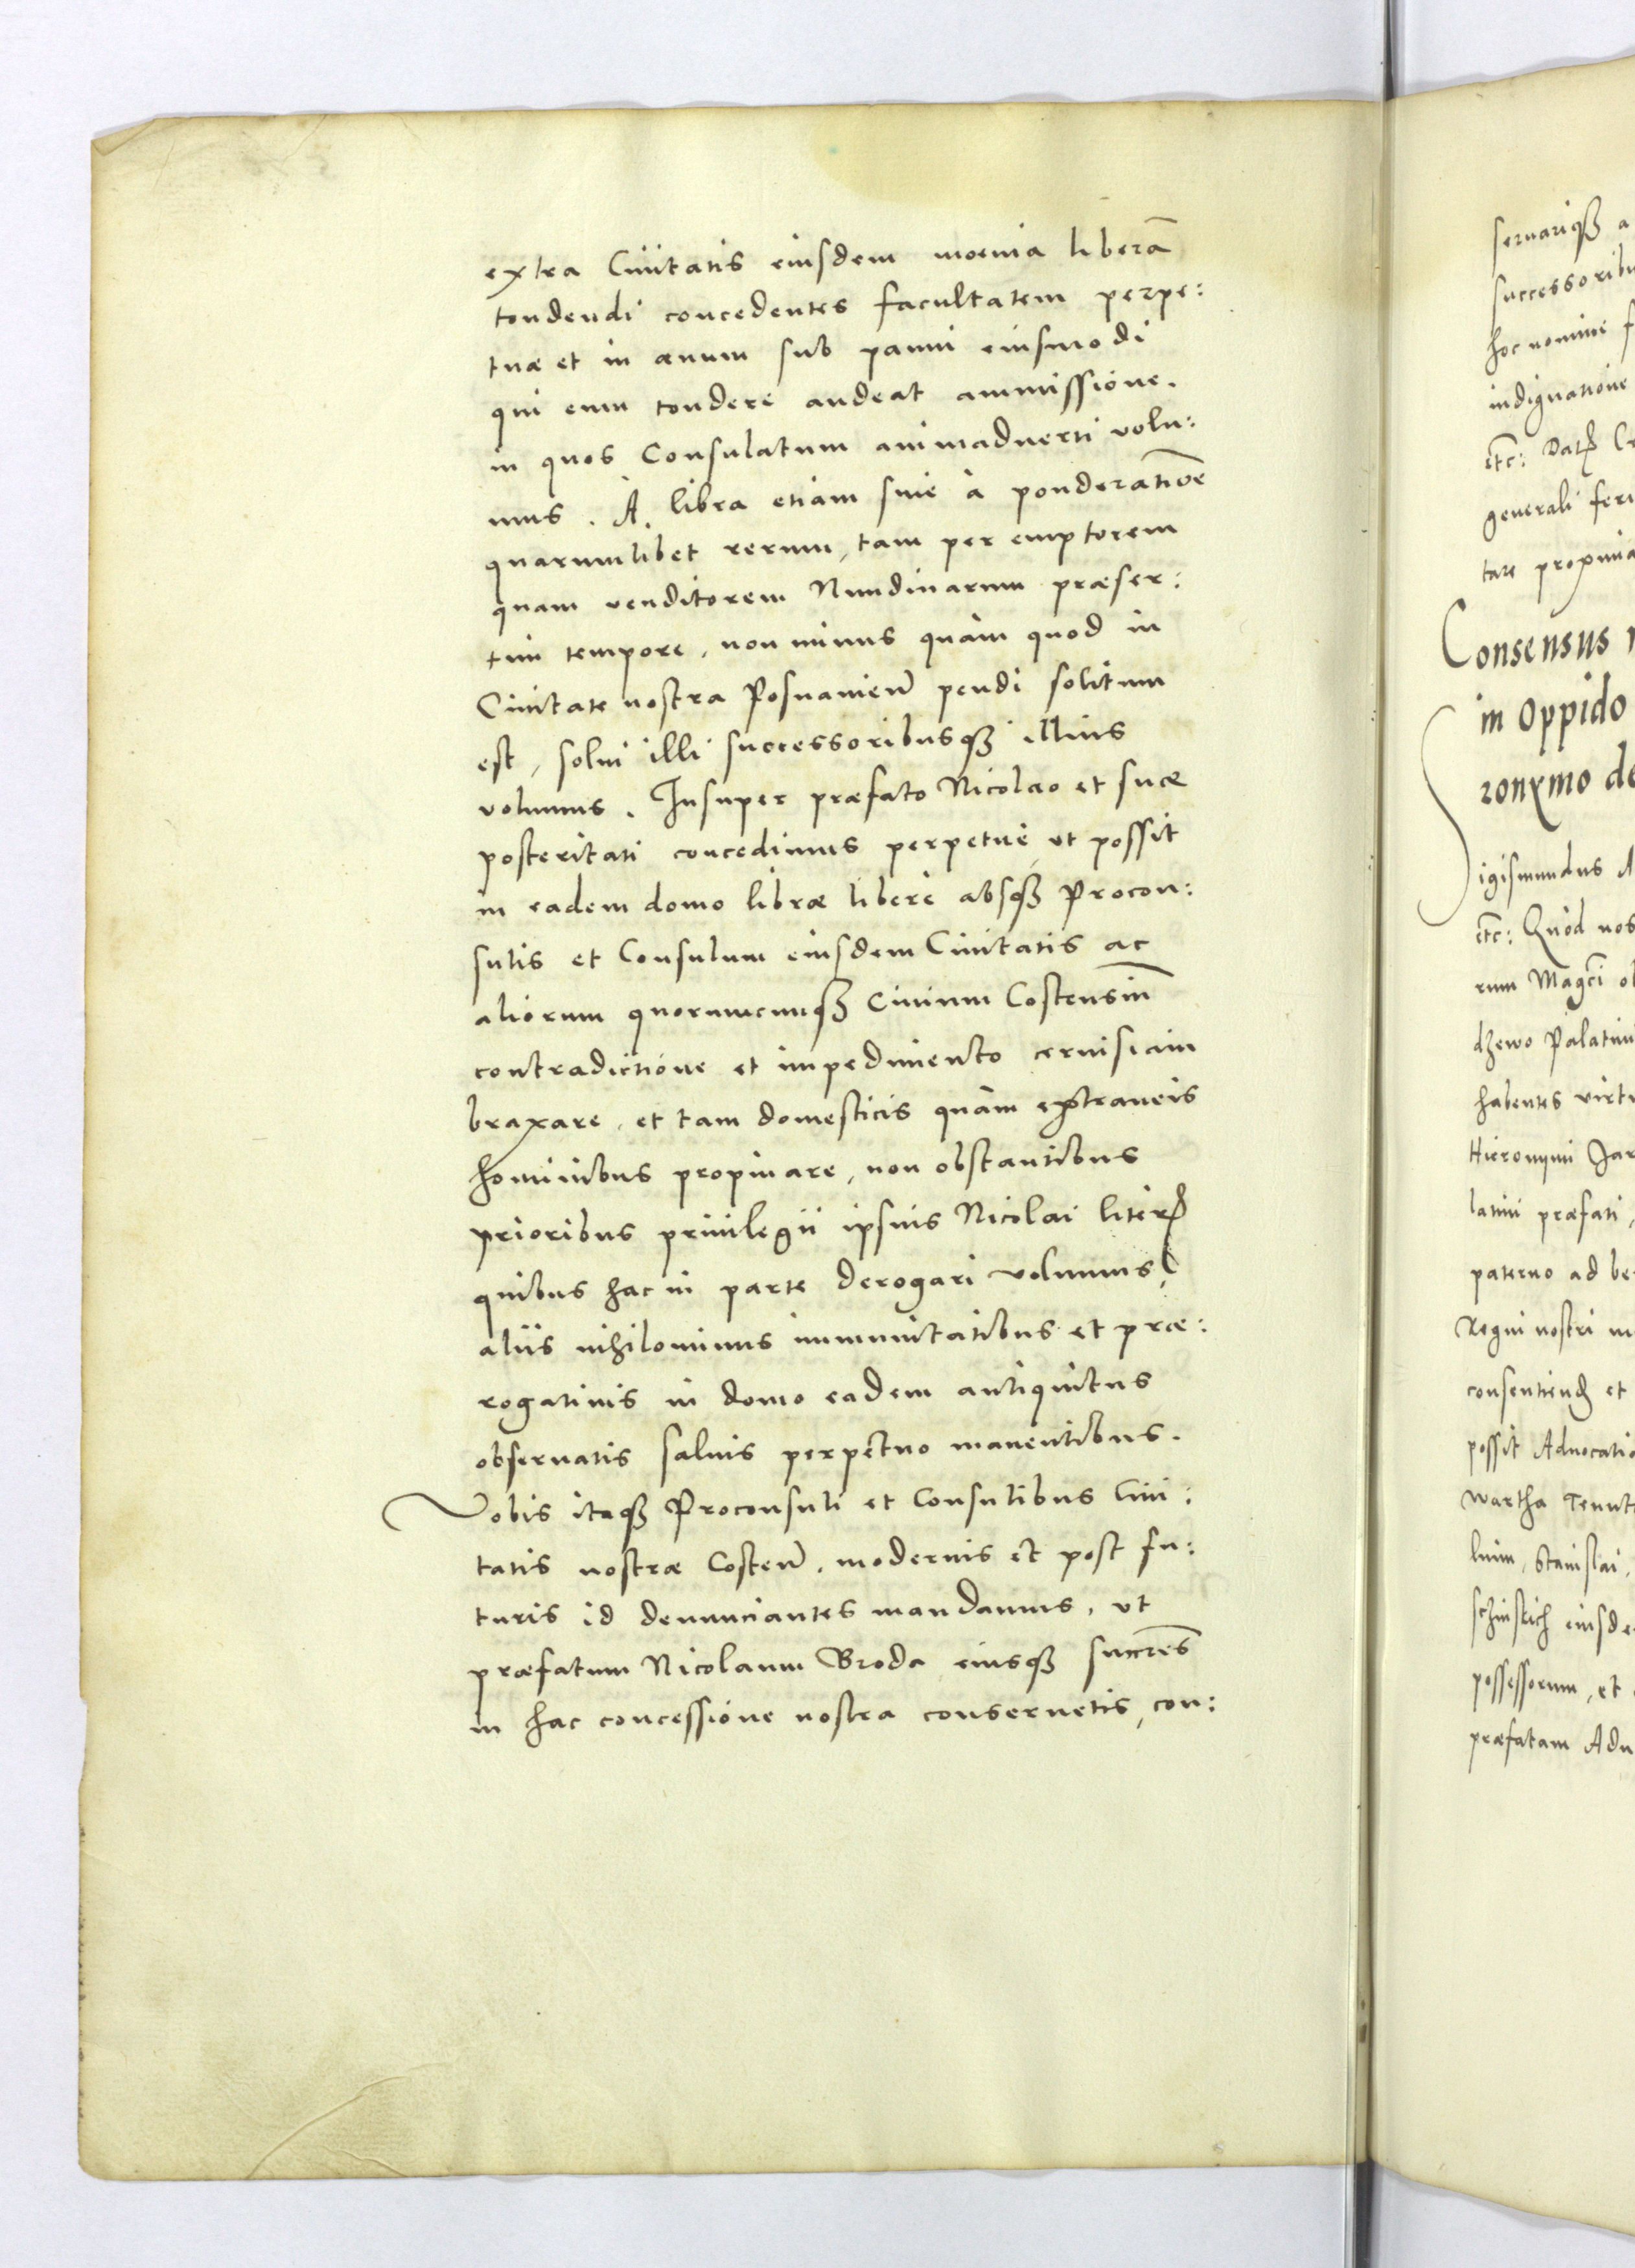 extra Ciuitatis eiusdem moenia liberã
tondendi concedentes facultatem perpe:
tuæ et in æuum sub panni eiusmodi
qui eum tondere audeat ammissione.
in quos Consulatum animaduerti volu:
mus. A libra etiam siue à ponderatiõe
quarumlibet rerum, tam per emptorem
quam venditorem Nundinarum præser:
tim tempore, non minus quàm quod in
Ciuitate nostra Posnanien̄ pendi solitum
est, solui illi successoribusqꝫ illius
volumus. Insuper præfato Nicolao et suæ
posteritati concedimus perpetuè ut possit
in eadem domo libræ liberè absqꝫ Procon:
sulis et Consulum eiusdem Ciuitatis ac
aliorum quorumcunqꝫ Ciuium Costensiũ
contradictione et impedimento ceruisiam
braxare, et tam domesticis quàm extraneis
hominibus propinare, non obstantibus
prioribus priuilegii ipsius Nicolai literꝭ
quibus hac in parte derogari volumus,
aliis nihilominus immunitatibus et præ:
rogatiuis in domo eadem antiquitus
obseruatis saluis perpetuo manentibus.
Vobis itaqꝫ Proconsuli et Consulibus Ciui:
tatis nostræ Costen̄. modernis et post fu:
turis id denunciantes mandamus, ut
præfatum Nicolaum Broda eiusqꝫ succ̄res
in hac concessione nostra conseruetis, con:
seruariqꝫ
successoribu
hoc nomine
indignatione
etc:
generali feri
tare propinia
Consensus
in Oppido
ronymo de
Sigismundus A
etc: Quod nos
rum Magc̄i
dzewo Palatini
habentes virtu
Hieronymi Jar
latini præfati,
paterno ad be
Regni nostri
consentiend et
possit Aduocatia
Wartha Tenut
Stanislai,
eiusde
possessorum, et
præfatam Adu